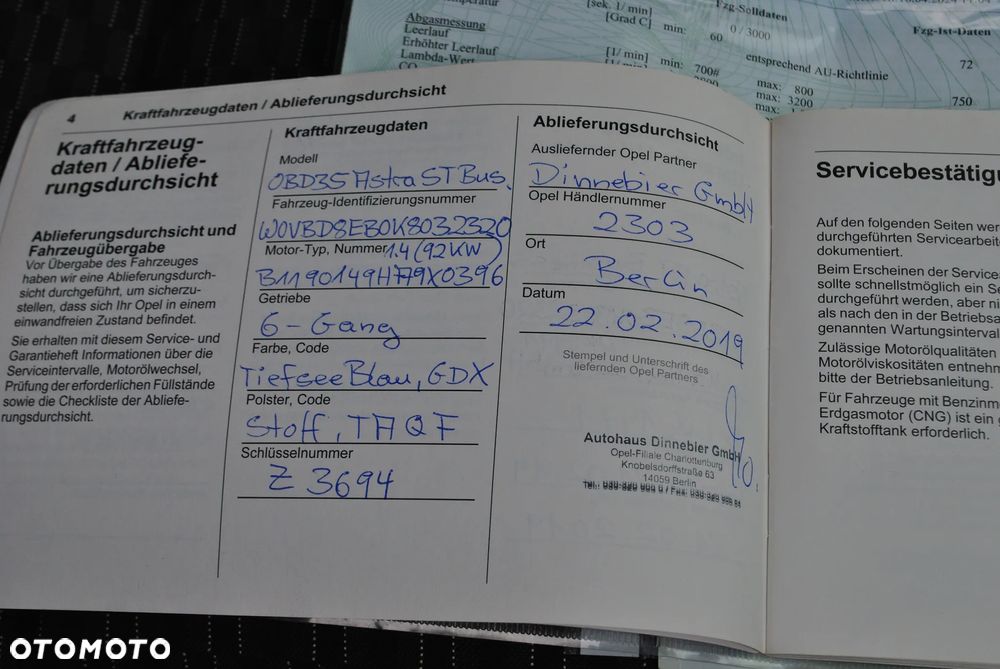 [sek. 1/min]
Fzg-Solldaten
[Grad C]
0 / 3000
Fzg-Ist-Daten
Abgasmessung
min:
60
Leerlauf
entsprechend AU-Richtlinie
72
Erhöhter Leerlauf
[1/ min]
min:
700#
max: 800
750
Lambda-Wert
max: 3200
CO
max:
4
Kraftfahrzeugdaten / Ablieferungsdurchsicht
Kraftfahrzeug-
daten / Abliefe-
rungsdurchsicht
Ablieferungsdurchsicht und
Fahrzeugübergabe
Vor Übergabe des Fahrzeuges
haben wir eine Ablieferungsdurch-
sicht durchgeführt, um sicherzu-
stellen, dass sich Ihr Opel in einem
einwandfreien Zustand befindet.
Sie erhalten mit diesem Service- und
Garantieheft Informationen über die
Serviceintervalle, Motorölwechsel,
Prüfung der erforderlichen Füllstände
sowie die Checkliste der Abliefe-
rungsdurchsicht.
Kraftfahrzeugdaten
Modell
OBD35 Astra ST Bus.
Fahrzeug-Identifizierungsnummer
W0VBD8EB0K8032320
Motor-Typ, Nummer 1.4 (92KW)
B1190149H79X0396
Getriebe
6-Gang
Farbe, Code
Tiefsee Blau, GDX
Polster, Code
Stoff, TAQF
Schlüsselnummer
Z 3694
Ablieferungsdurchsicht
Ausliefernder Opel Partner
Dinnebier GmbH
Opel Händlernummer
2303
Ort
Berlin
Datum
22.02.2019
Stempel und Unterschrift des
liefernden Opel Partners
Autohaus Dinnebier GmbH
Opel-Filiale Charlottenburg
Knobelsdorffstraße 63
14059 Berlin
Servicebestätigu
Auf den folgenden Seiten wer
durchgeführten Servicearbeite
dokumentiert.
Beim Erscheinen der Service
sollte schnellstmöglich ein Se
durchgeführt werden, aber ni
als nach den in der Betriebsa
genannten Wartungsinterval
Zulässige Motorölqualitäten
Motorölviskositäten entnehm
bitte der Betriebsanleitung.
Für Fahrzeuge mit Benzinm
Erdgasmotor (CNG) ist ein g
Kraftstofftank erforderlich.
OTOMOTO